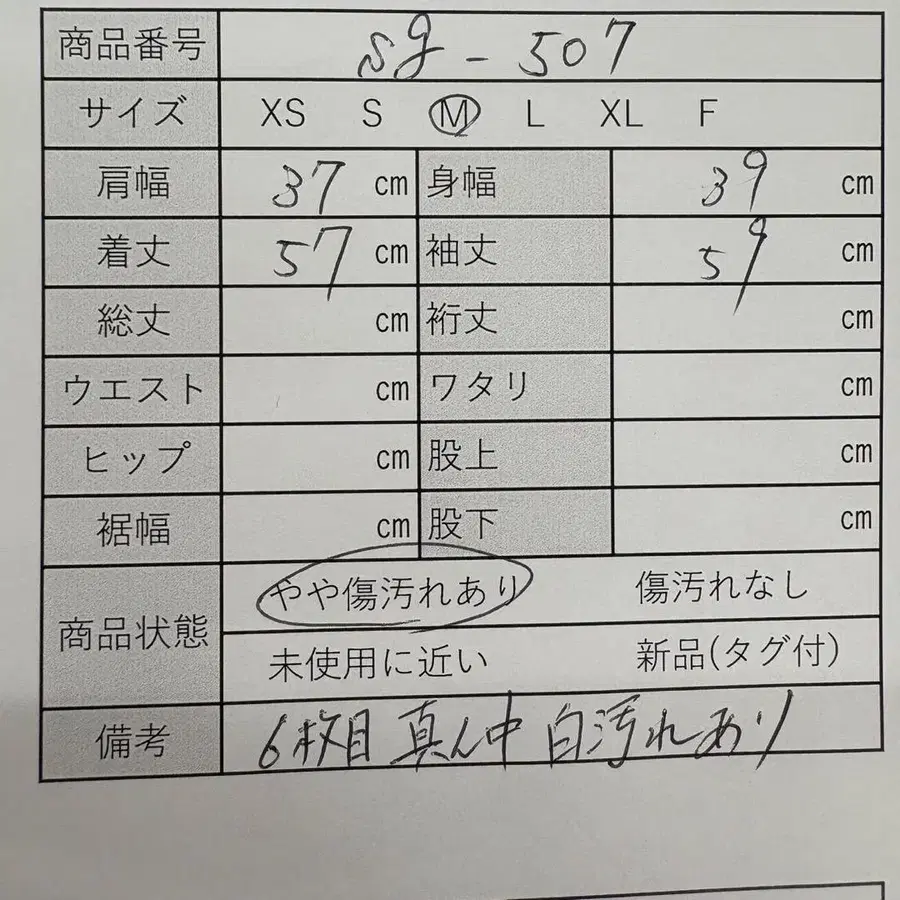 商品番号 sg-507
サイズ XS S M L XL F
肩幅 37 cm 身幅 39 cm
着丈 57 cm 袖丈 59 cm
総丈 cm 裄丈 cm
ウエスト cm ワタリ cm
ヒップ cm 股上 cm
裾幅 cm 股下 cm
商品状態 やや傷汚れあり 傷汚れなし
未使用に近い 新品(タグ付)
備考 6枚目 真ん中 白汚れあり